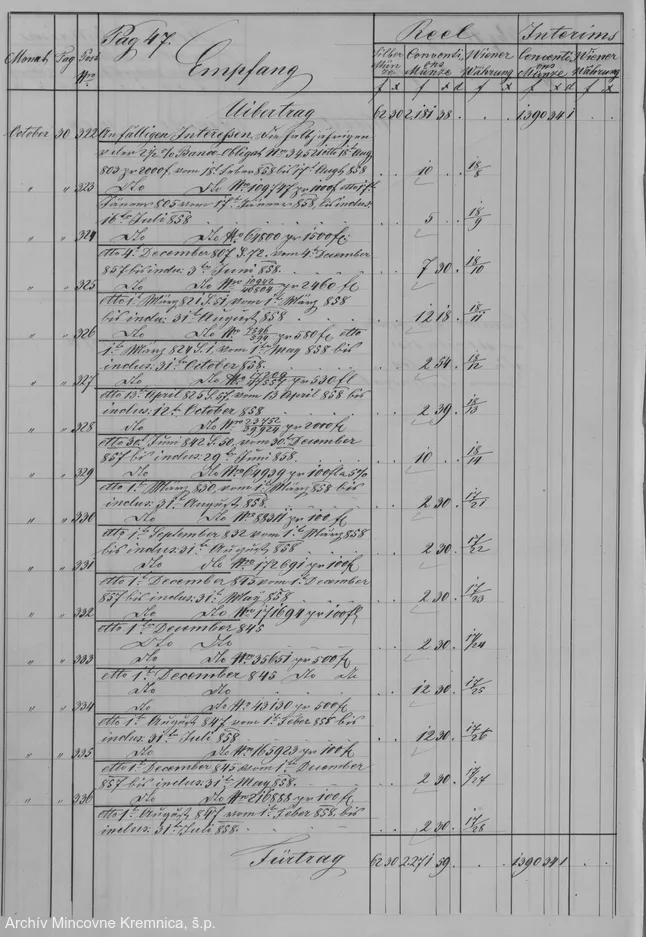 Pag 47.
Empfang
Reel
Interims
Monat
Pag
Post Nro
Silber Münze
Conventions Münze
Wiener Währung
Conventions Münze
Wiener Währung
f x f x d f x f x d f x
Uibertrag 62 30 2181 38 . . . 1390 34 1
October 30 322 An fälligen Interessen, der halbjährigen
von der 2½ % Banco Obligat Nro 34521 dtto 1t Aug
803 pr 2000f vom 1t Feber 858 bis 1t Augst 858 . . 10 . . 18/8
" " 323 Dto Dto Nro 109747 pr 100f dtto 17t
Jänner 805 vom 17t Jänner 858 bis inclus:
16t Juli 858 . . . . . 5 . . 18/9
" " 324 Dto Dto Nro 64800 pr 1500 f
dtto 4t December 807 S. 72, vom 4t December
857 bis inclu: 3t Juni 858. . . . 7 30 . 18/10
" " 325 Dto Dto Nro pr 2460 fl
dtto 1t März 821 S. 51, vom 1t März 858
bis inclu: 31t August 858 . . . 12 18 . 18/11
" " 326 Dto Dto Nro pr 580 fl dtto
1t März 824 S. 1, vom 1t May 858 bis
inclus: 31t October 858. . . . 2 54 . 18/12
" " 327 Dto Dto Nro pr 530 fl
dtto 13t April 825 S. 57, vom 13 April 858 bis
inclus: 12t October 858 . . . 2 39 . 18/13
" " 328 Dto Dto Nro 23752/39924 pr 2000 fl
dtto 30t Juni 842 S. 50, vom 30t December
857 bis inclus: 29t Juni 858. . . . 10 . . 18/14
" " 329 Dto Dto Nro 64939 pr 100 fl a 5%
dtto 1t März 830, vom 1t März 858 bis
inclus: 31t August 858. . . . 2 30 . 17/21
" " 330 Dto Dto Nro 88311 pr 100 fl
dtto 1t September 832 vom 1t März 858
bis inclus: 31t August 858 . . . 2 30 . 17/22
" " 331 Dto Dto Nro 172691 pr 100 f
dtto 1t December 845 vom 1t December
857 bis inclus: 31t May 858 . . . 2 30 . 17/23
" " 332 Dto Dto Nro 171694 pr 100 fl
dtto 1t December 845
Dto Dto . . 2 30 . 17/24
" " 333 Dto Dto Nro 35651 pr 500 f
dtto 1t December 845 Dto Dto
Dto Dto . . 12 30 . 17/25
" " 334 Dto Dto Nro 43130 pr 500 f
dtto 1t August 847 vom 1t Feber 858 bis
inclus: 31t Juli 858 . . . 12 30 . 17/26
" " 335 Dto Dto Nro 165923 pr 100 f
dtto 1t December 845 vom 1t December
857 bis inclus: 31t May 858. . . . 2 30 . 17/27
" " 336 Dto Dto Nro 216888 pr 100 f
dtto 1t August 847 vom 1t Feber 858. bis
inclus: 31t Juli 858. . . . 2 30 . 17/28
Fürtrag 62 30 2271 59 . . . 1390 34 1
Archív Mincovne Kremnica, š.p.